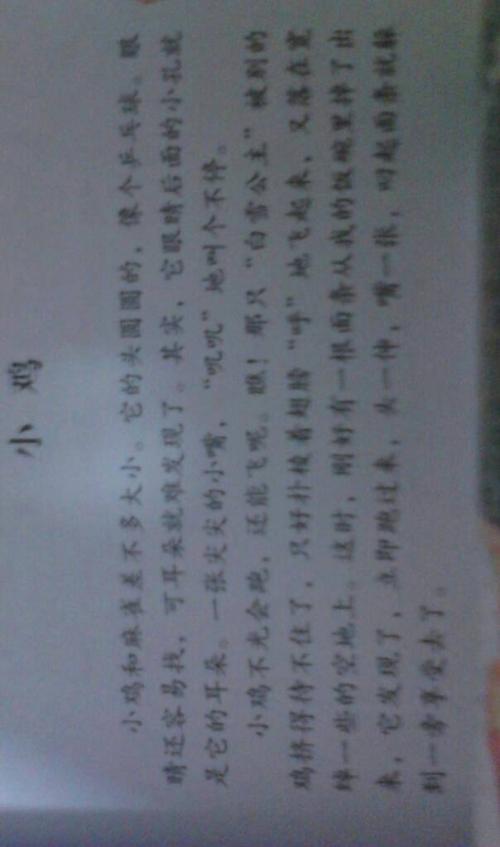 小鸡
小鸡和麻雀差不多大小。它的头圆圆的，像个乒乓球。眼
睛还容易找，可耳朵就难发现了。其实，它眼睛后面的小孔就
是它的耳朵。一张尖尖的小嘴，“叽叽”地叫个不停。
小鸡不光会跑，还能飞呢。瞧！那只“白雪公主”被别的
鸡挤得待不住了，只好扑棱着翅膀“呼”地飞起来，又落在宽
绰一些的空地上。这时，刚好有一根面条从我的饭碗里掉了出
来，它发现了，立即跑过来，头一伸，嘴一张，叼起面条就躲
到一旁享受去了。